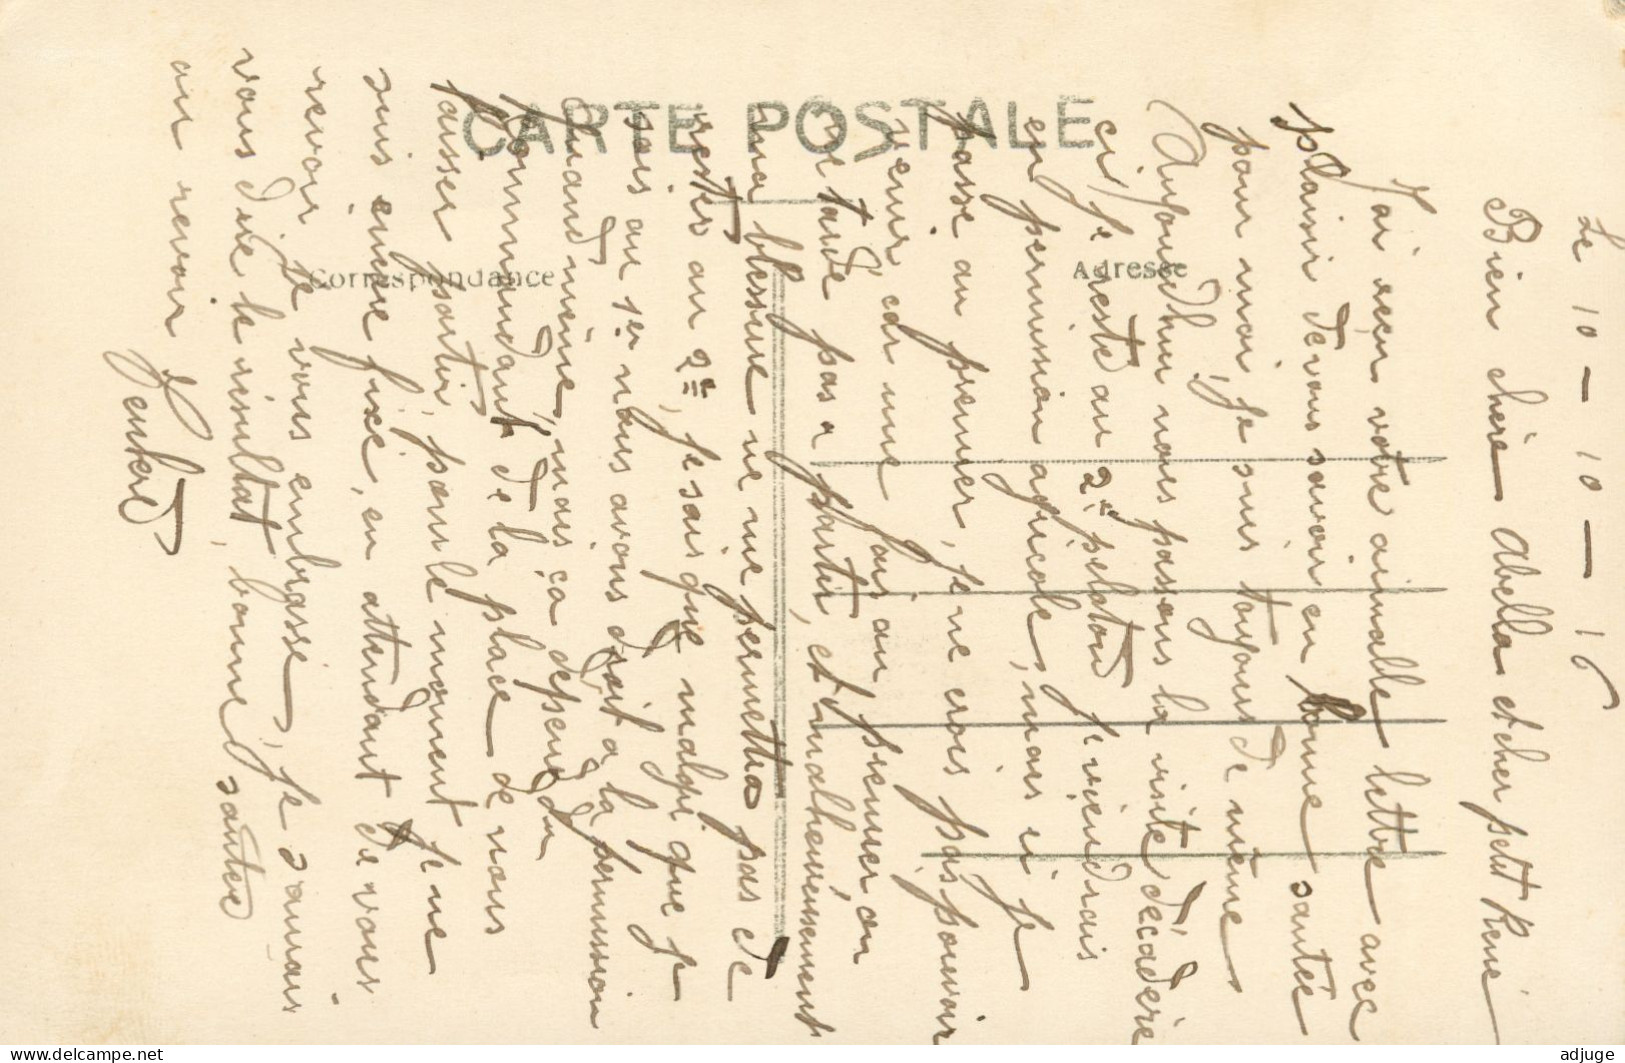 CARTE POSTALE
Correspondance
Adresse
Le 10 - 10 - 16
Bien chère Abella et cher petit René
J'ai reçu votre aimable lettre avec
plaisir de vous savoir en bonne santée
pour moi, je suis toujours de même
Aujourdhui nous passons la visite
si je reste au 2e peloton je viendrais
en permission agricole, mais si je
passe au premier, je ne crois pas pouvoir
venir car une fois au premier on
ne tarde pas a partir, et malheureusement
ma blessure ne me permettra pas de
rester au 2e, je sais que malgré que je
sois au 1er nous avons droit a la permission
quand même, mais ça dépend du
Commandant de la place de nous
laisser partir, pour le moment je ne
suis encore fixé, en attendant de vous
revoir je vous embrasse, je saurais
vous dire le résultat, bonne santée
au revoir
adjuge